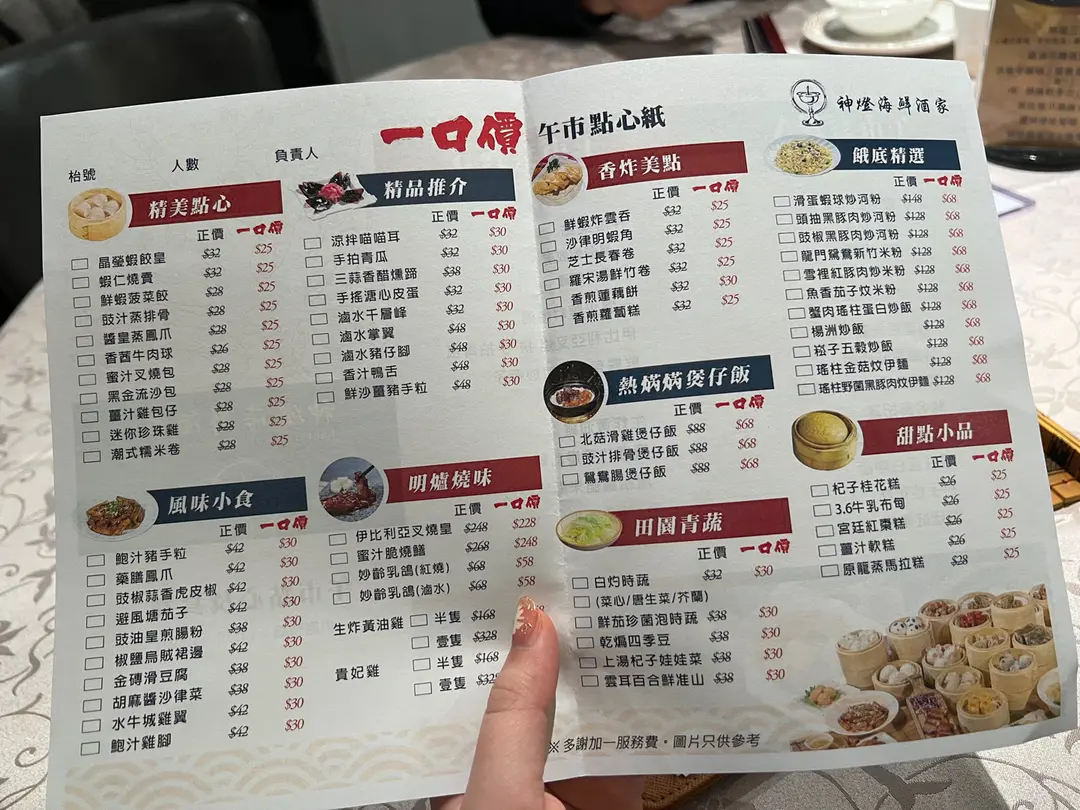 一口價 午市點心紙
神燈海鮮酒家
枱號 人數 負責人
精美點心
正價 一口價
晶瑩蝦餃皇 $32 $25
蝦仁燒賣 $32 $25
鮮蝦菠菜餃 $28 $25
豉汁蒸排骨 $28 $25
醬皇蒸鳳爪 $28 $25
香茜牛肉球 $26 $25
蜜汁叉燒包 $28 $25
黑金流沙包 $28 $25
薑汁雞包仔 $28 $25
迷你珍珠雞 $28 $25
潮式糯米卷 $28 $25
風味小食
正價 一口價
鮑汁豬手粒 $42 $30
藥膳鳳爪 $42 $30
豉椒蒜香虎皮椒 $42 $30
避風塘茄子 $42 $30
豉油皇煎腸粉 $38 $30
椒鹽烏賊裙邊 $42 $30
金磚滑豆腐 $38 $30
胡麻醬沙律菜 $38 $30
水牛城雞翼 $42 $30
鮑汁雞腳 $42 $30
精品推介
正價 一口價
涼拌喵喵耳 $32 $30
手拍青瓜 $32 $30
三蒜香醋燻蹄 $38 $30
手搖溏心皮蛋 $32 $30
滷水千層峰 $32 $30
滷水掌翼 $48 $30
滷水豬仔腳 $48 $30
香汁鴨舌 $48 $30
鮮沙薑豬手粒 $48 $30
明爐燒味
正價 一口價
伊比利亞叉燒皇 $248 $228
蜜汁脆燒鱔 $268 $248
妙齡乳鴿(紅燒) $68 $58
妙齡乳鴿(滷水) $68 $58
生炸黃油雞 半隻 $168
壹隻 $328
貴妃雞 半隻 $168
壹隻
香炸美點
正價 一口價
鮮蝦炸雲吞 $32 $25
沙律明蝦角 $32 $25
芝士長春卷 $32 $25
羅宋湯鮮竹卷 $32 $25
香煎蓮藕餅 $32 $30
香煎蘿蔔糕 $32 $25
熱焫焫煲仔飯
正價 一口價
北菇滑雞煲仔飯 $88 $68
豉汁排骨煲仔飯 $88 $68
鴛鴦腸煲仔飯 $88 $68
田園青蔬
正價 一口價
白灼時蔬 $32 $30
(菜心/唐生菜/芥蘭)
鮮茄珍菌泡時蔬 $38 $30
乾煸四季豆 $38 $30
上湯杞子娃娃菜 $38 $30
雲耳百合鮮准山 $38 $30
餓底精選
正價 一口價
滑蛋蝦球炒河粉 $148 $68
頭抽黑豚肉炒河粉 $128 $68
豉椒黑豚肉炒河粉 $128 $68
龍門鴛鴦新竹米粉 $128 $68
雪裡紅豚肉炒米粉 $128 $68
魚香茄子炆米粉 $128 $68
蟹肉瑤柱蛋白炒飯 $128 $68
楊洲炒飯 $128 $68
崧子五穀炒飯 $128 $68
瑤柱金菇炆伊麵 $128 $68
瑤柱野菌黑豚肉炆伊麵 $128 $68
甜點小品
正價 一口價
杞子桂花糕 $26 $25
3.6牛乳布甸 $26 $25
宮廷紅棗糕 $26 $25
薑汁軟糕 $26 $25
原龍蒸馬拉糕 $28 $25
※多謝加一服務費・圖片只供參考